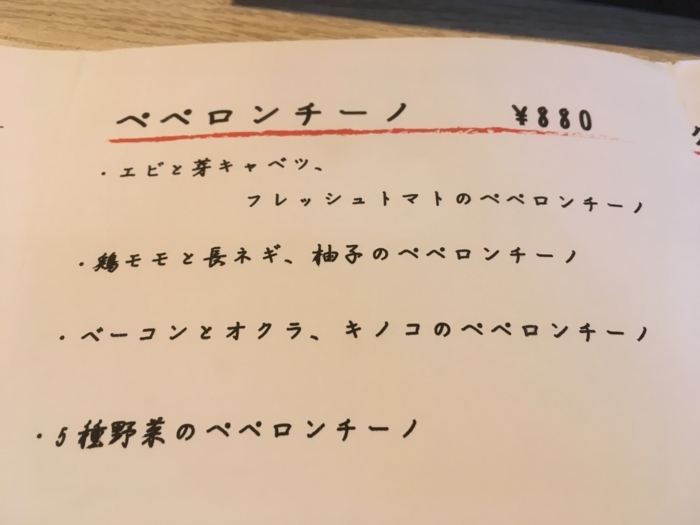 ペペロンチーノ ¥880
・エビと芽キャベツ、
フレッシュトマトのペペロンチーノ
・鶏モモと長ネギ、柚子のペペロンチーノ
・ベーコンとオクラ、キノコのペペロンチーノ
・5種野菜のペペロンチーノ